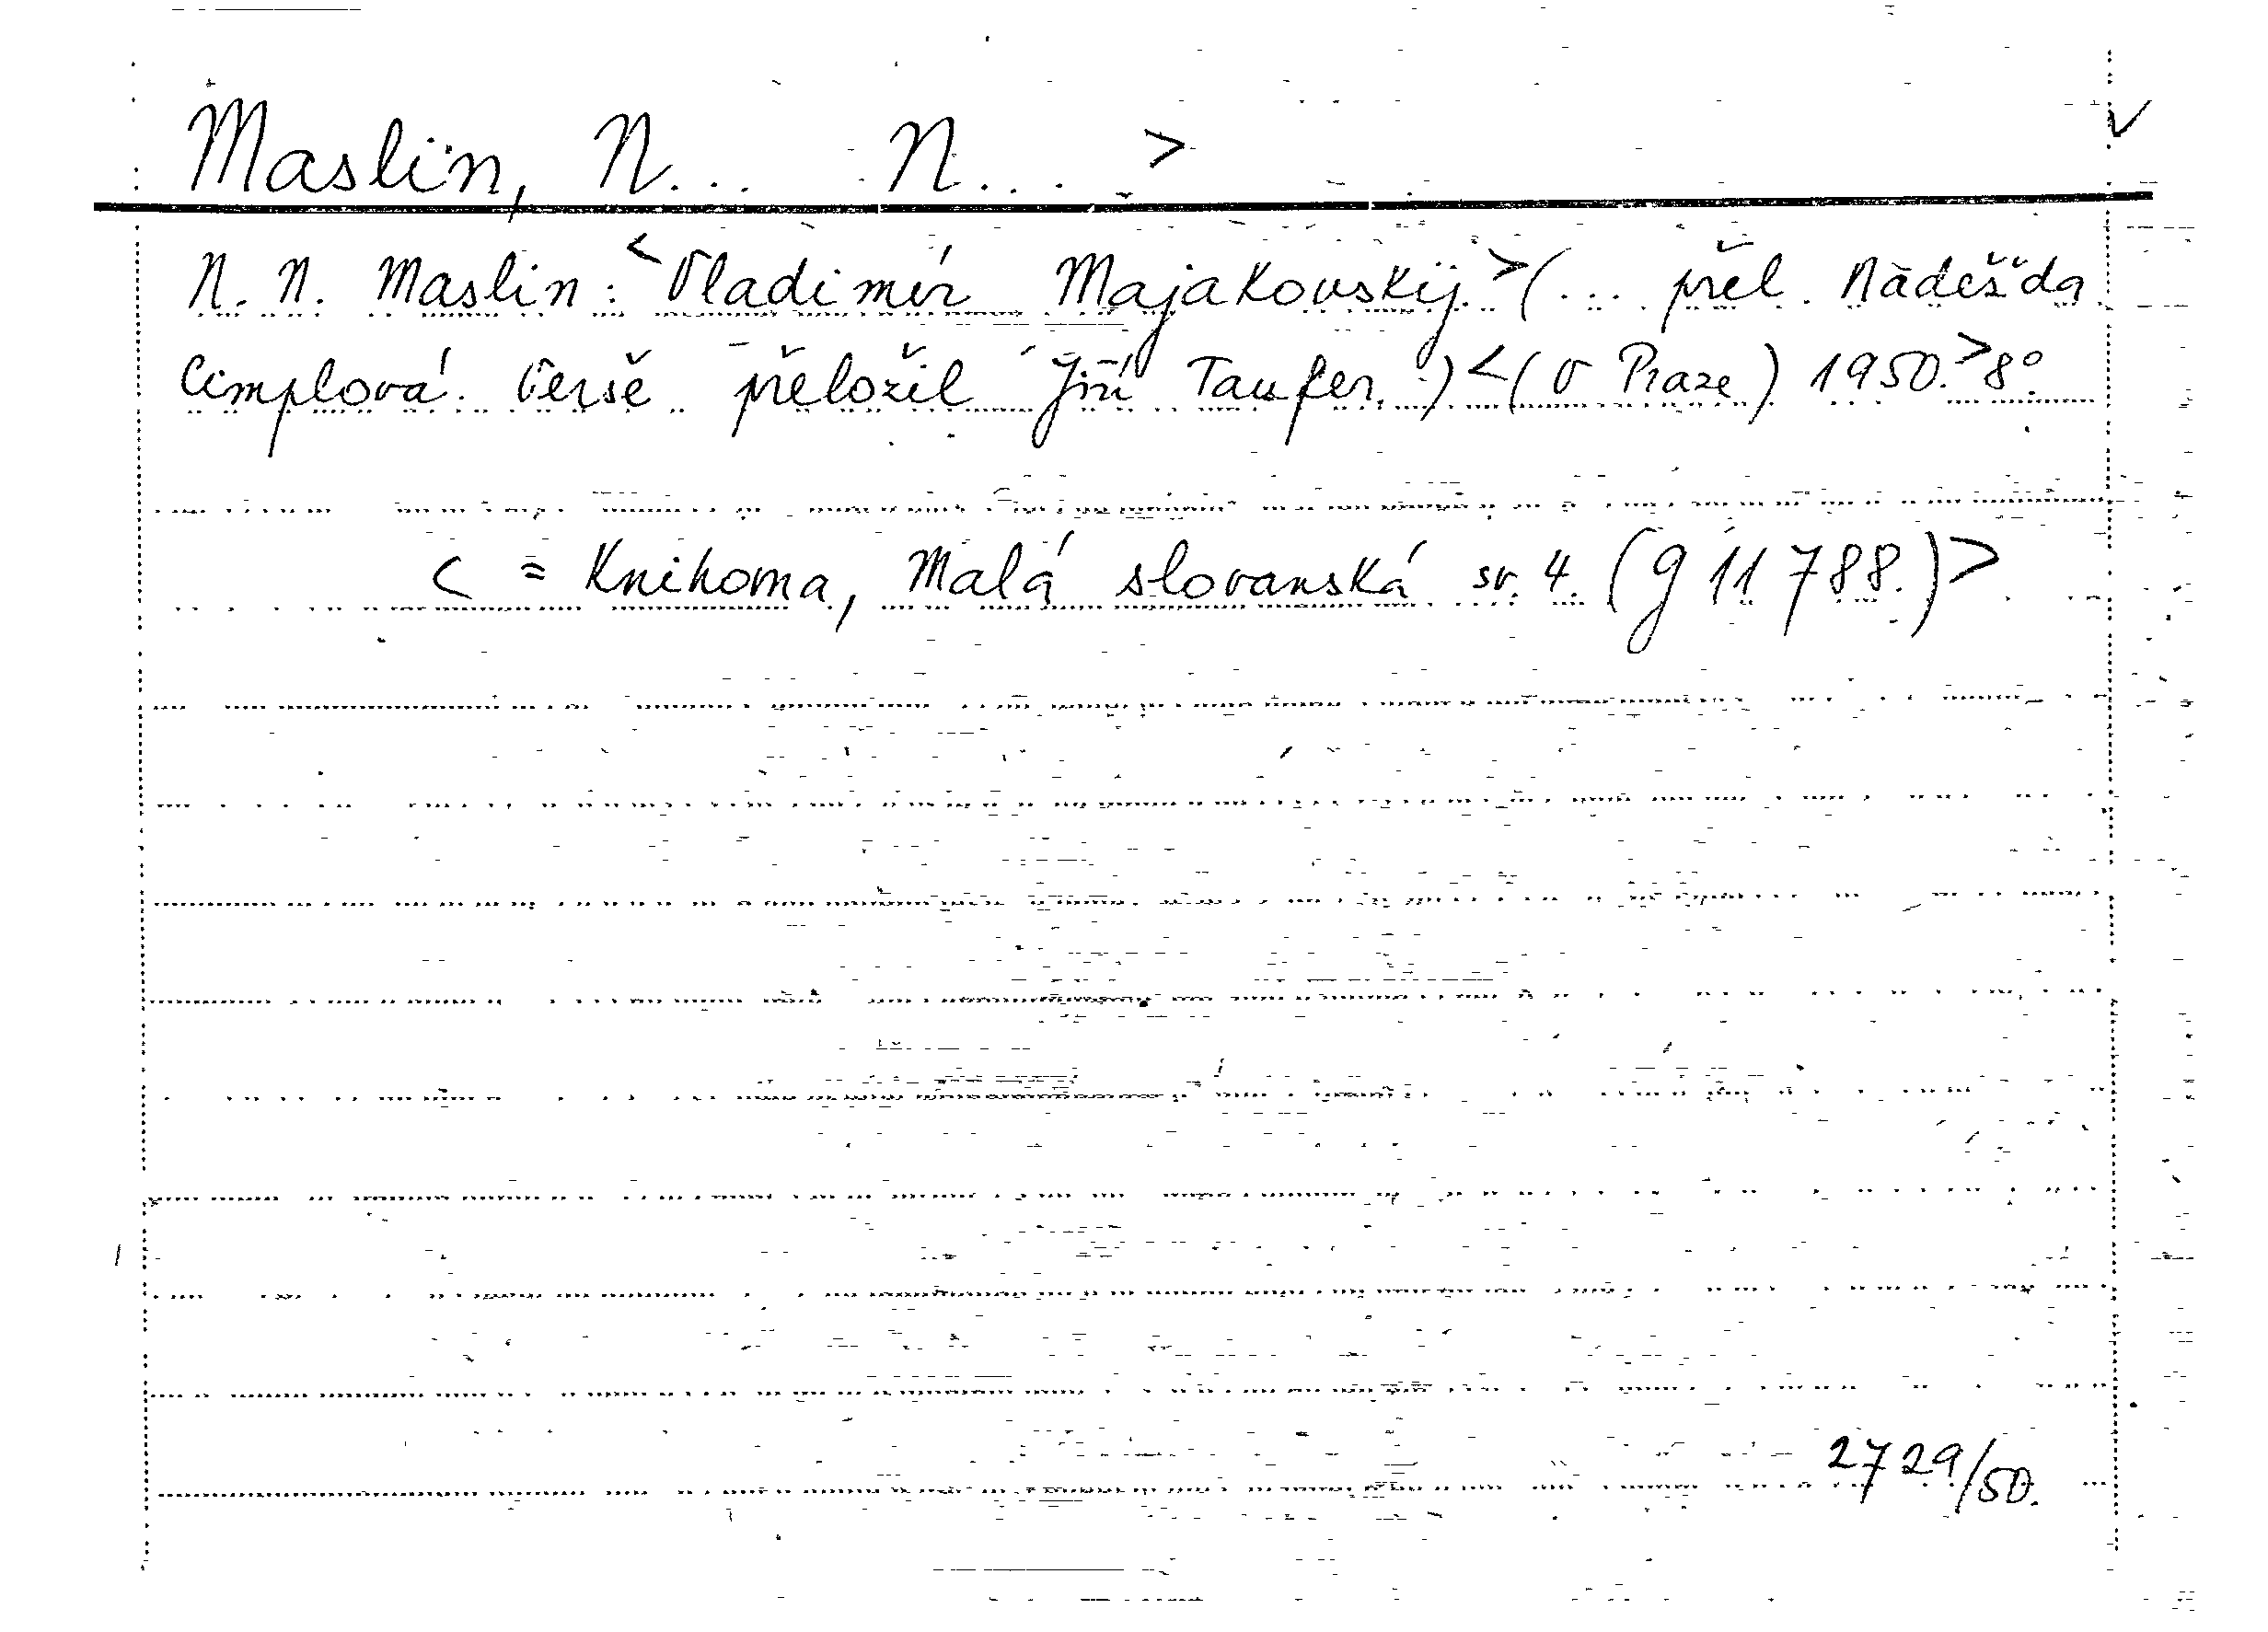 Maslin, N... N... >
N. N. Maslin: <Vladimír Majakovskij.> (... přel. Naděžda
Cimplová. Verše přeložil Jiří Taufer.) < (V Praze) 1950.> 8°.
< = Knihovna, Malá slovanská sv. 4. (g 11 788.) >
2729/50.